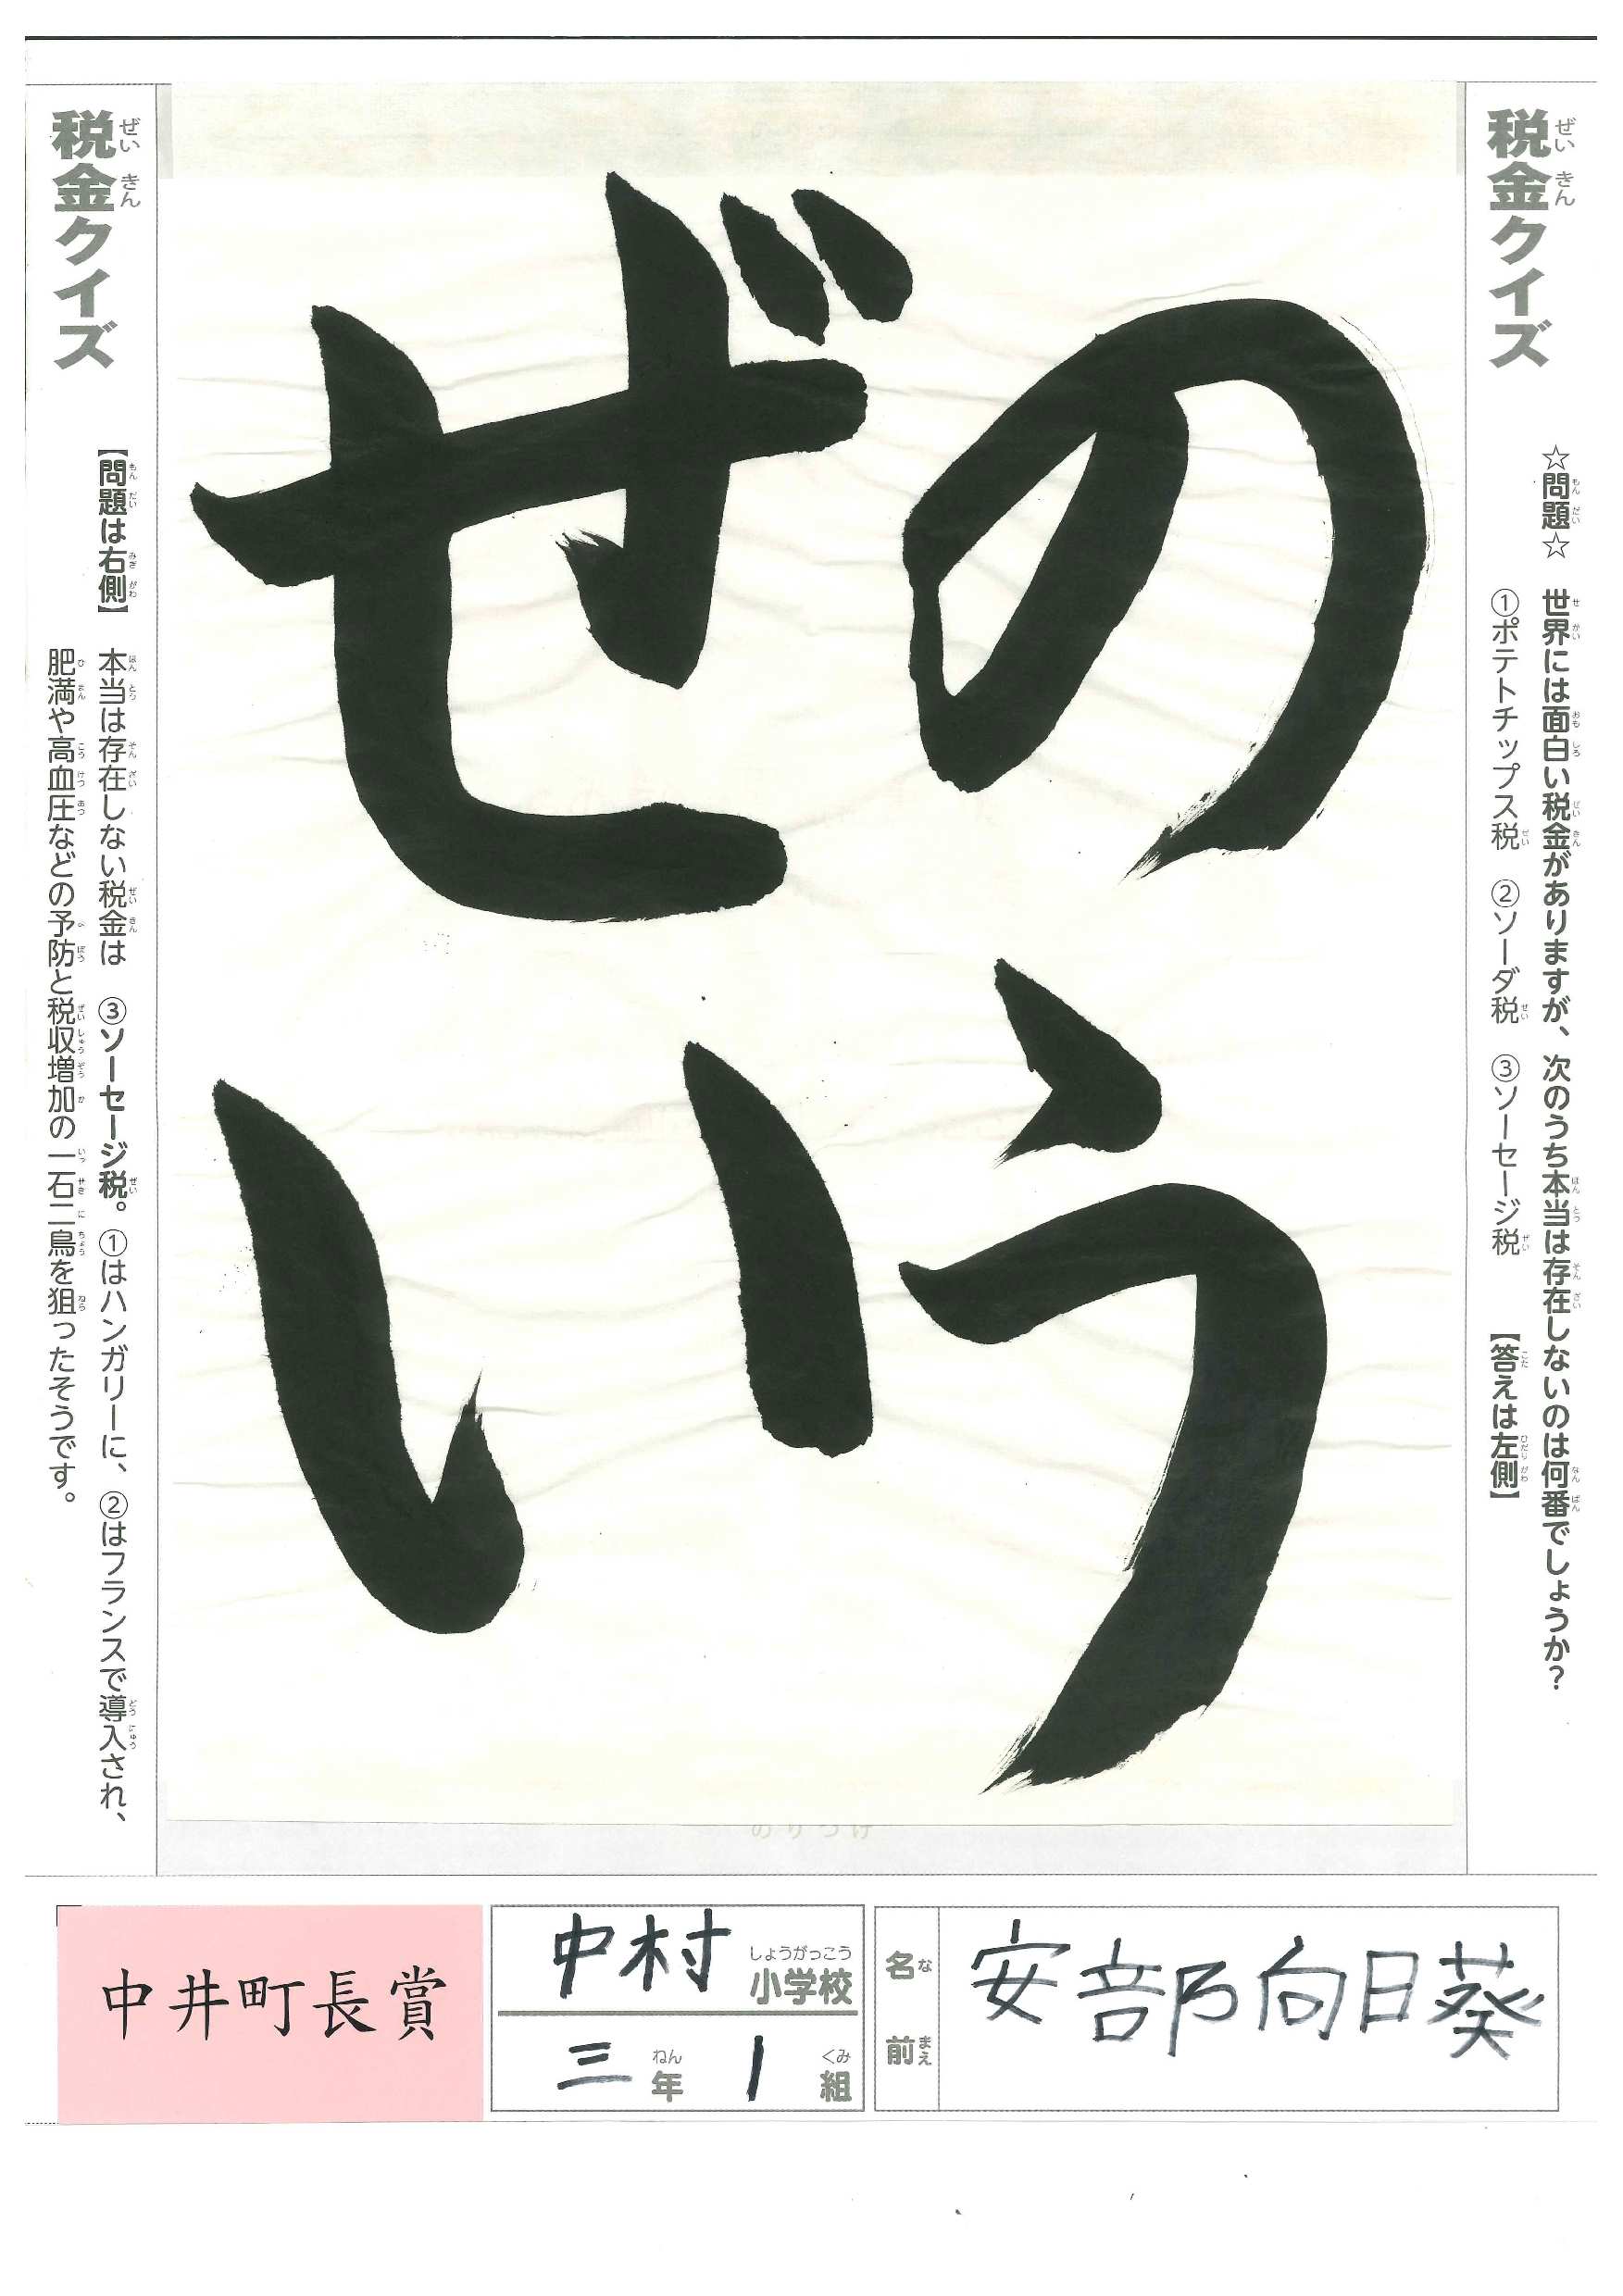 税金クイズ
☆問題☆ 世界には面白い税金がありますが、次のうち本当は存在しないのは何番でしょうか？
①ポテトチップス税 ②ソーダ税 ③ソーセージ税 【答えは左側】
のう
ぜい
税金クイズ
【問題は右側】 本当は存在しない税金は ③ソーセージ税。①はハンガリーに、②はフランスで導入され、
肥満や高血圧などの予防と税収増加の一石二鳥を狙ったそうです。
のりつけ
中井町長賞
中村小学校
三年 1組
名前 安部向日葵